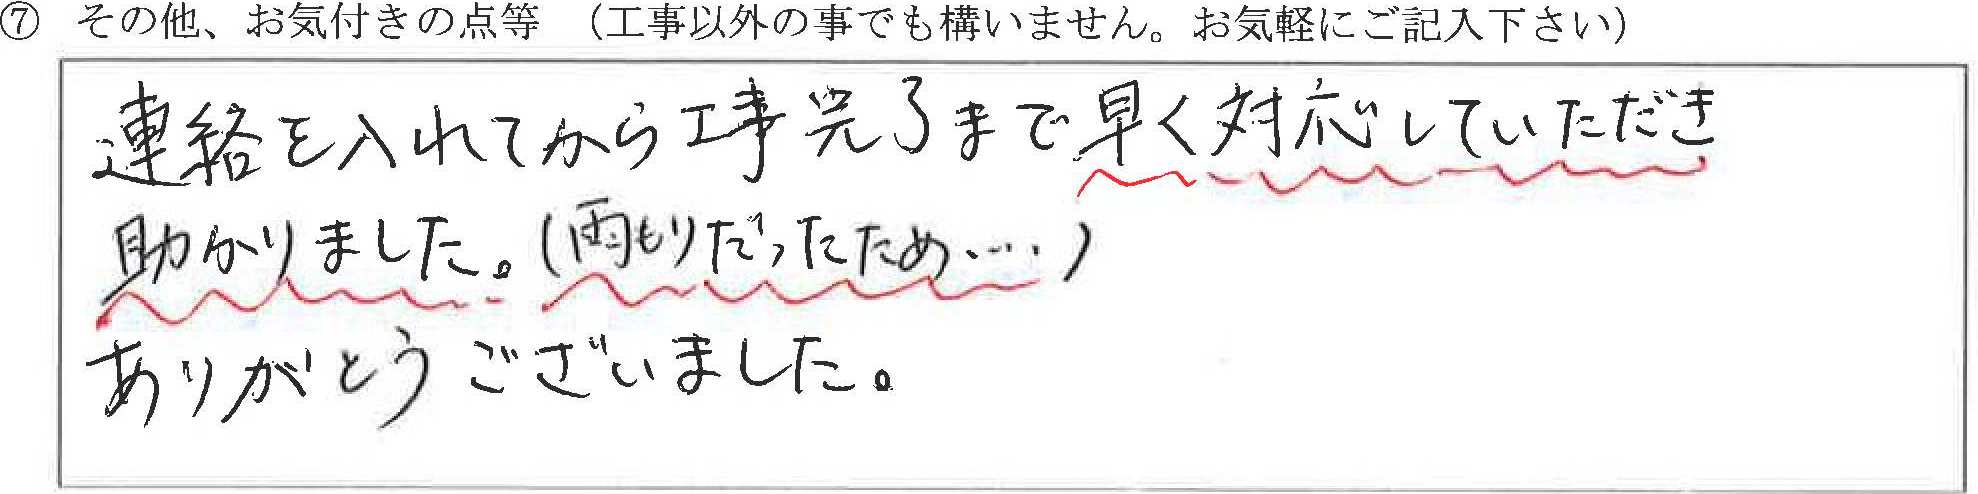 ⑦ その他、お気付きの点等 （工事以外の事でも構いません。お気軽にご記入下さい）
連絡を入れてから工事完了まで早く対応していただき
助かりました。(雨もりだったため....)
ありがとうございました。